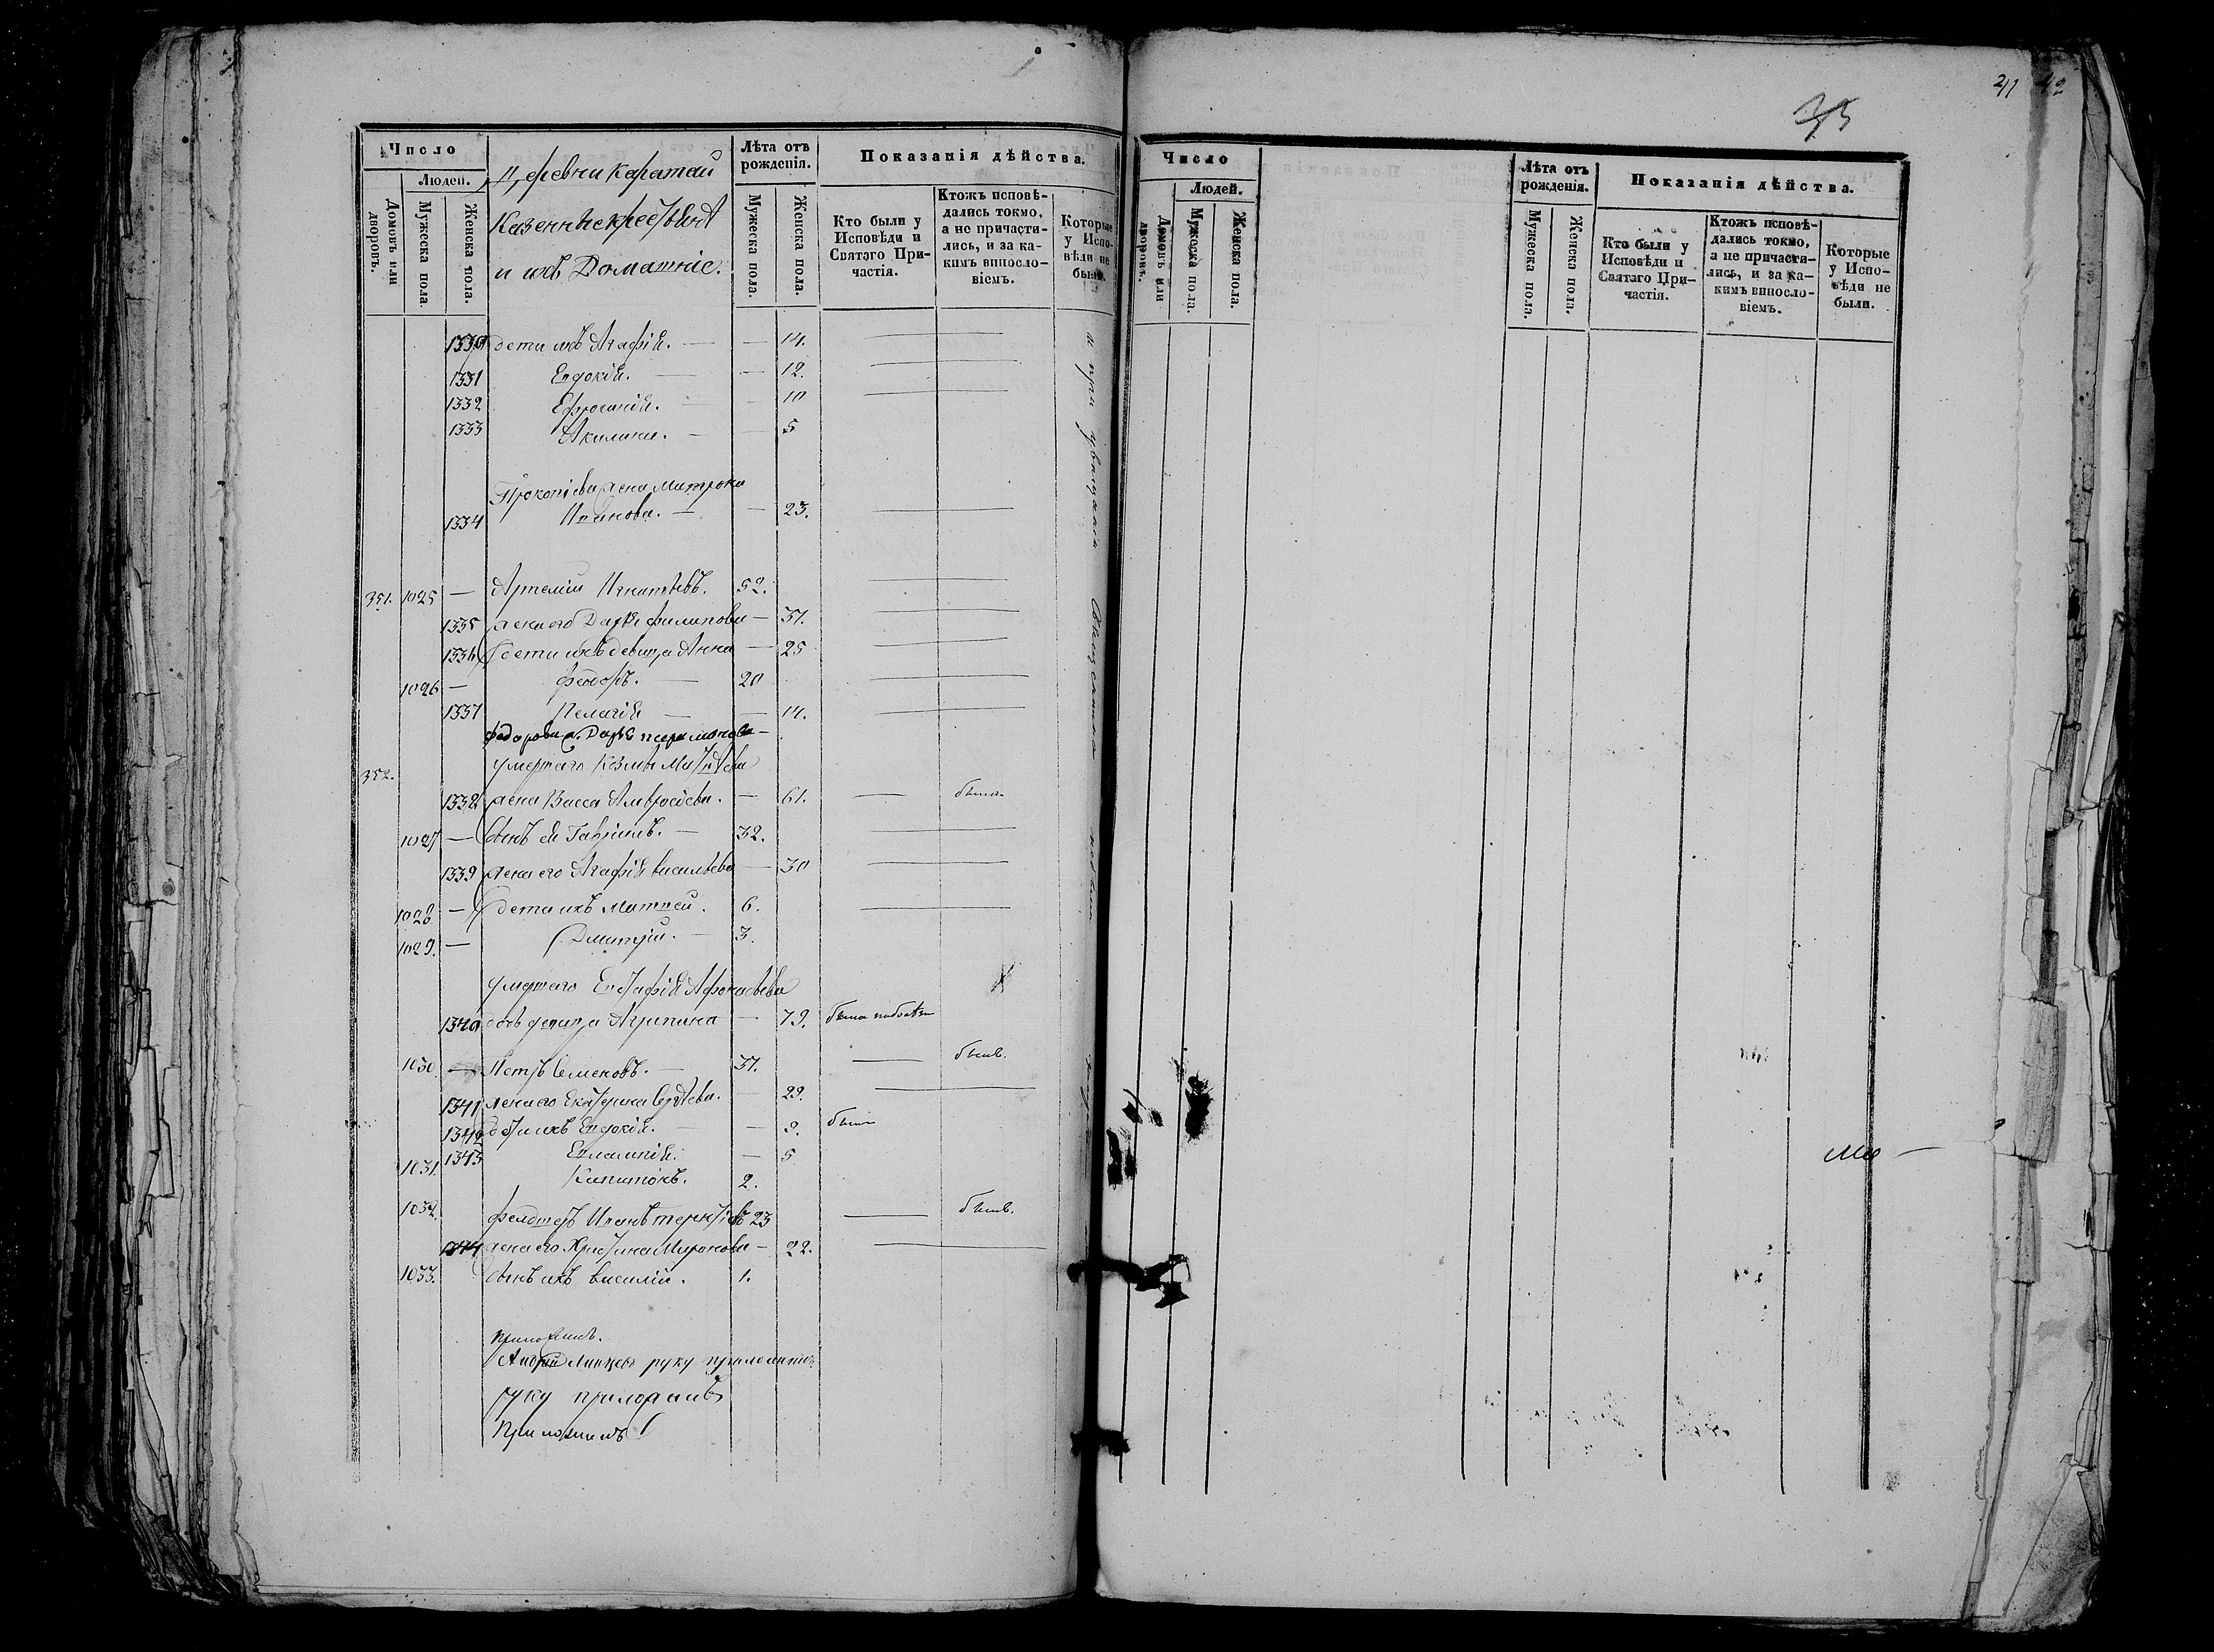 41 42
35
Число
Людей.
Домовъ или дворовъ.
Мужеска пола.
Женска пола.
Деревни Каратаи
Казенные крестьяня
и ихъ Домашніе.
Лѣта отъ рожденія.
Мужеска пола.
Женска пола.
Показанія дѣйства.
Кто были у Исповѣди и Святаго Причастія.
Ктожъ исповѣдались токмо, а не причастились, и за какимъ винословіемъ.
Которые у Исповѣди не были.
1330 дети ихъ Агафія. — — 14.
1331 Евдокія. — — 12.
1332 Ефросинія. — — 10
1333 Акилина. — — 5
Прокопіева жена Матрона
1334 Иванова. — — 23.
351. 1025 — Артемій Игнатьевъ. 52.
1335 жена его Дарья Филипова — 51.
1336 дети ихъ девица Анна — 25
1026 — Феодоръ. — 20
1337 Пелагія — — 14.
Федорова ж. Дарья
352. умершаго Козмы Матвеева
1338 жена Васса Амвросіева. — 61. — была
1027 — сынъ ея Гавріилъ. — 32.
1339 жена его Агафія Васильева — 30
1028 — дети ихъ Матвей. 6.
1029. — Дмитрій. — 3.
умершаго Евстафія
1340 дочь девица Агрипина — 79. была
1030. — Петръ Семеновъ. — 37. — былъ.
1341 жена его Екатерина Сергѣева. — 29.
1342 дети ихъ Евдокія. — — 9. была
1343 Евлампія. — 5
1031. Капитонъ. 2.
1032. фелдшеръ Иванъ 23 — былъ.
1344 жена его Христина Миронова — 22.
1033. сынъ ихъ Василій. 1.
приложилъ.
Андрей руку приложилъ
руку приложилъ
Приложилъ
Число
Людей.
Домовъ или дворовъ.
Мужеска пола.
Женска пола.
Лѣта отъ рожденія.
Мужеска пола.
Женска пола.
Показанія дѣйства.
Кто были у Исповѣди и Святаго Причастія.
Ктожъ исповѣдались токмо, а не причастились, и за какимъ винословіемъ.
Которые у Исповѣди не были.